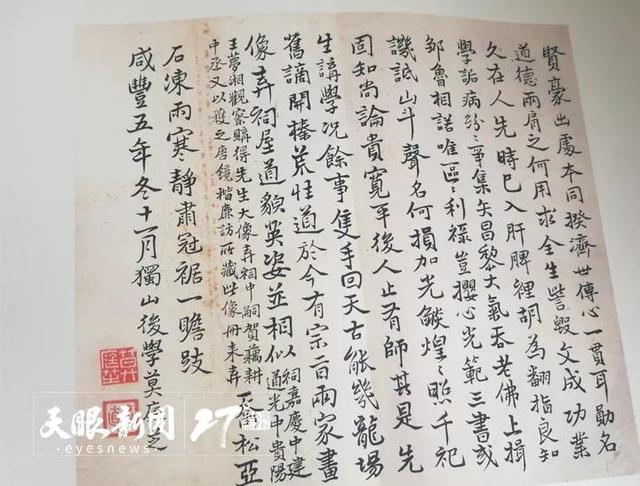 賢豪出處本同揆濟世傳心一貫耳勛名
道德兩肩之何用求全生訾毀文成功業
久在人先時已入肝脾裡胡為翻指良知
學詬病紛〻爭集矢昌黎大氣吞老佛上揖
鄒魯相諾唯區〻利祿豈攖心光範三書或
譏詆山斗聲名何損加光燄煌〻照千祀
固知尚論貴寬平後人止有師其是先
生講學況餘事隻手回天古能幾龍場
舊謫開榛荒性道於今有宗旨兩家畫
像弆祠屋道貌英姿並相似祠嘉慶中建
道光中貴陽
王夢湘觀察購得先生大像弆祠中嗣賀藕耕
中丞又以獲之唐鏡楷廉訪所藏此像冊来弆
松亞
石凍雨寒靜肅冠裾一瞻跂
咸豐五年冬十一月獨山後學莫之
天眼新闻 27
·eyesnews·